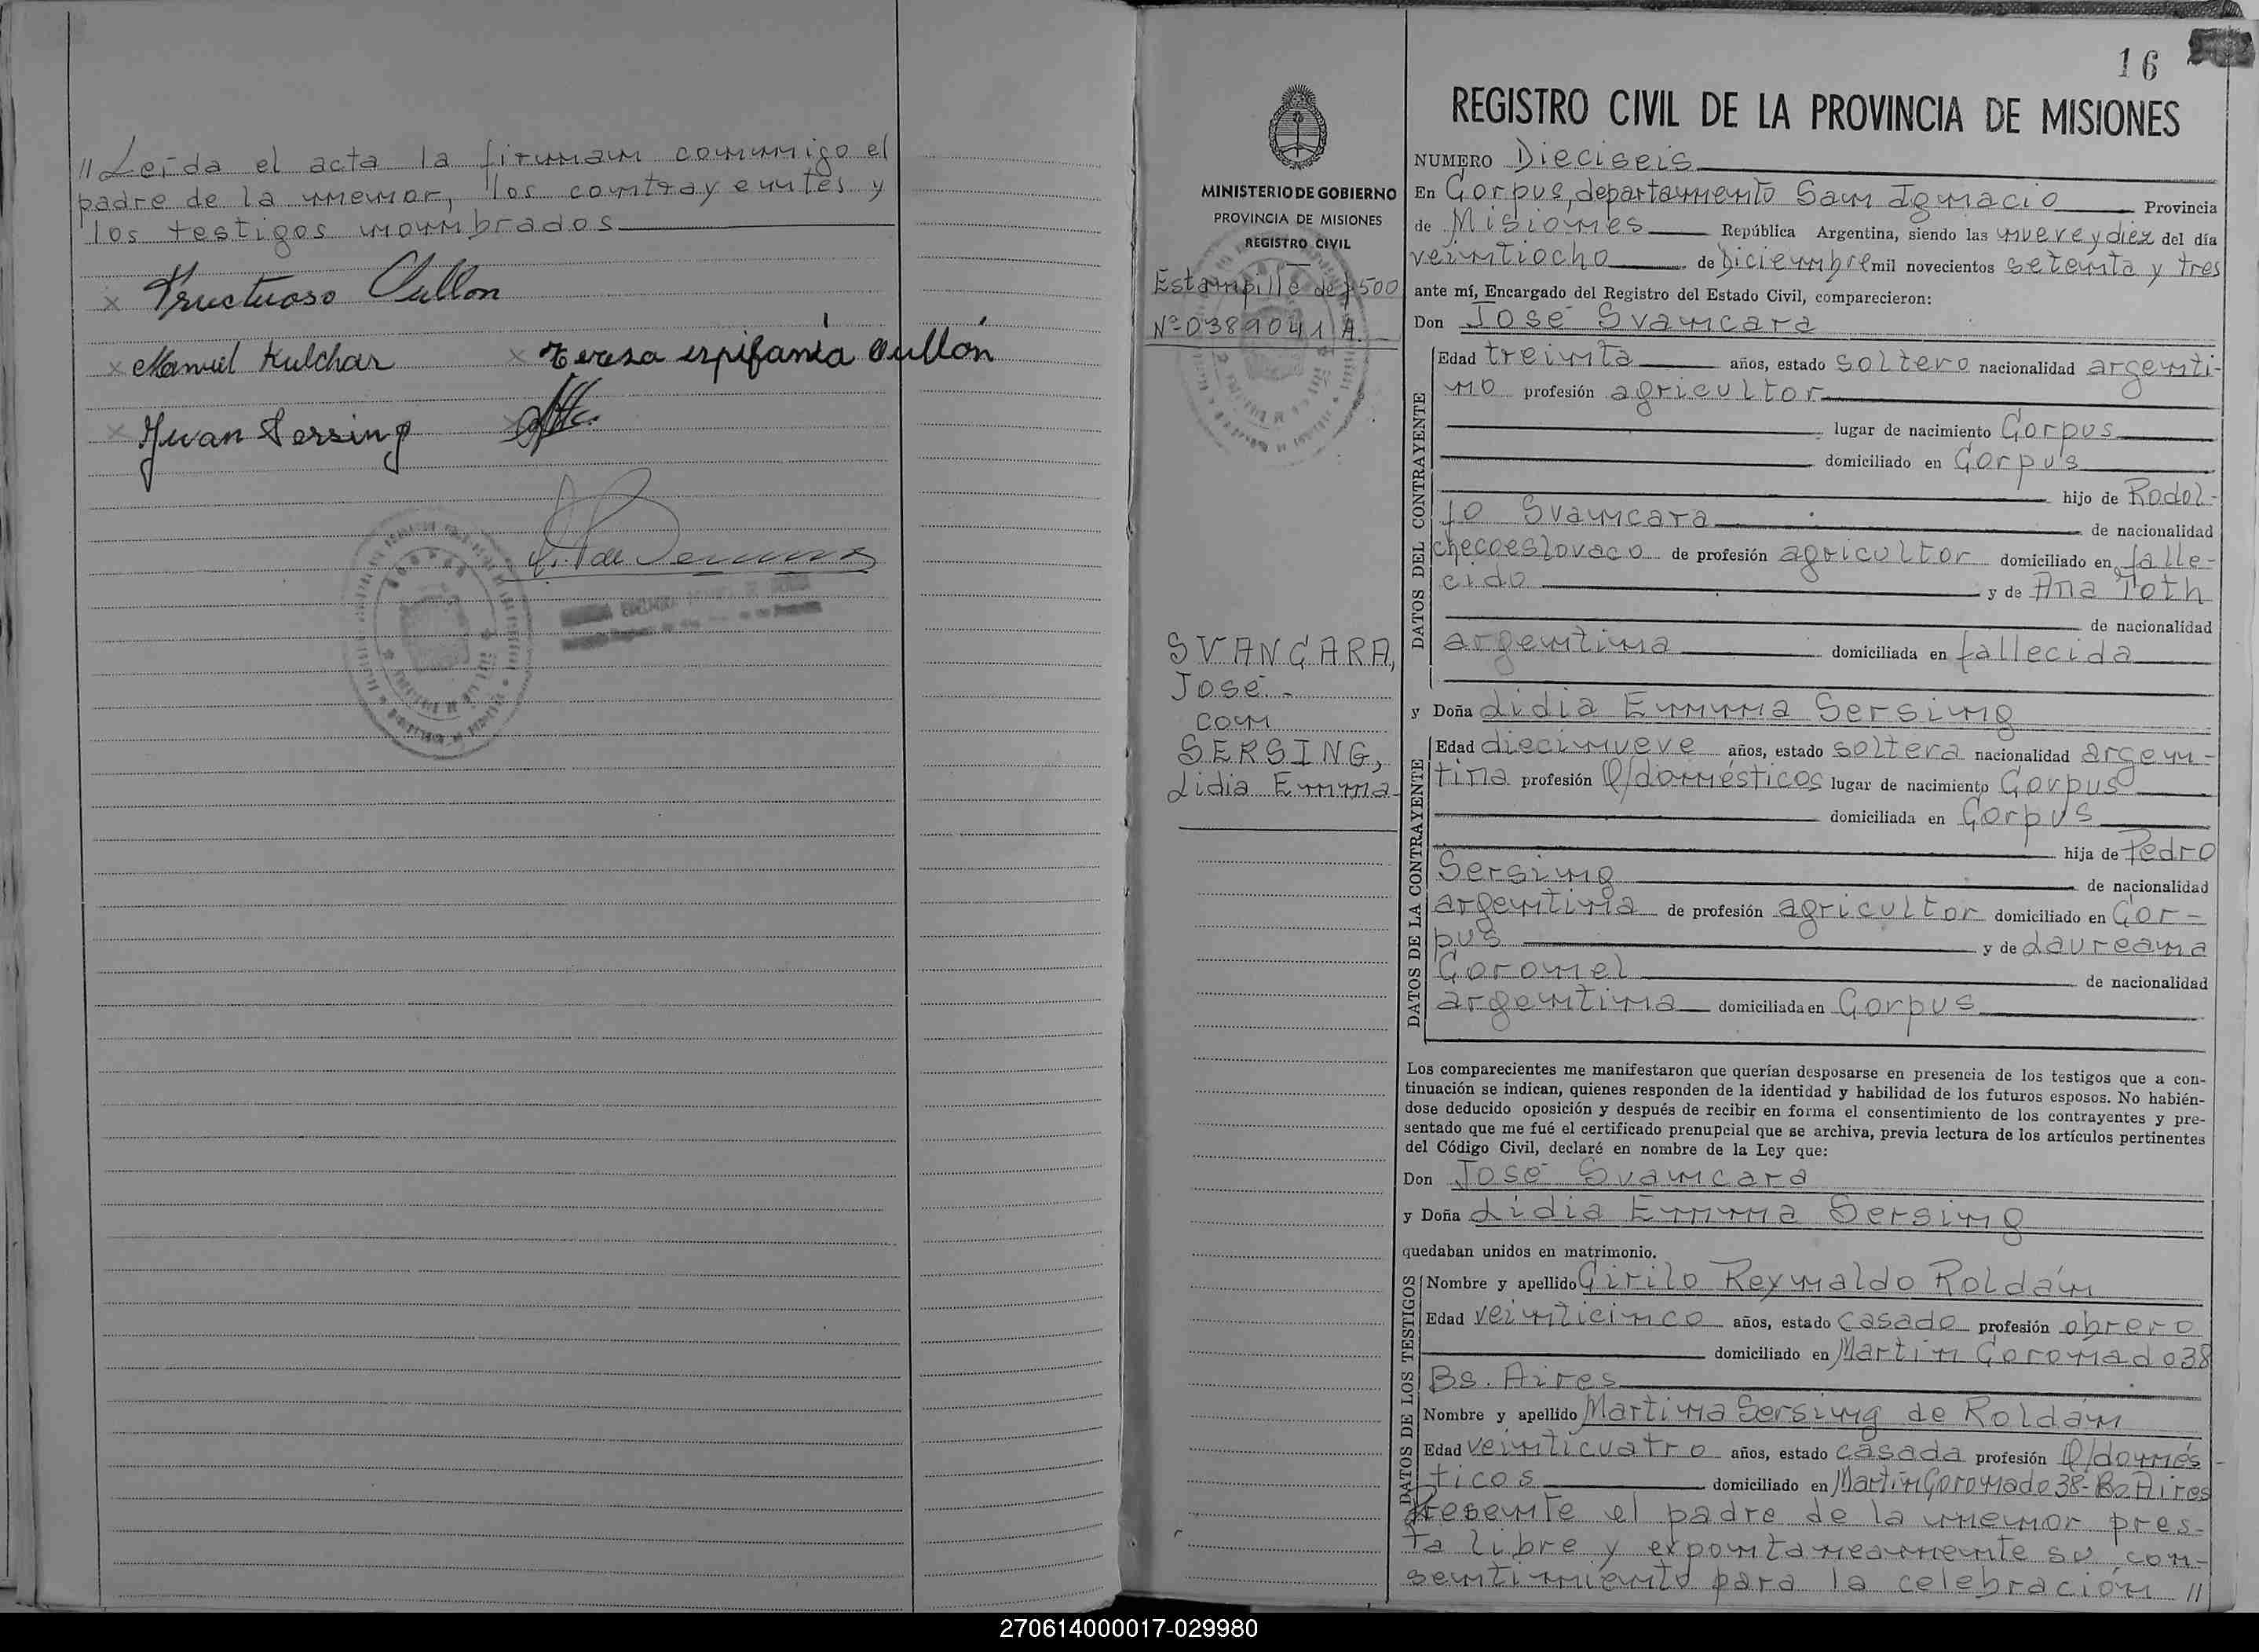 // Leída el acta la firman conmigo el
padre de la menor, los contrayentes y
los testigos nombrados
x Fructuoso Cullon
x Manuel Kulchar x Teresa espifania Cullón
x Juan Sersing x
16
REGISTRO CIVIL DE LA PROVINCIA DE MISIONES
MINISTERIO DE GOBIERNO
PROVINCIA DE MISIONES
REGISTRO CIVIL
Estampilla de $500
Nº 0389041 A.
SVANCARA,
José.-
con
SERSING,
Lidia Emma
NUMERO Dieciseis
En Corpus, departamento San Ignacio Provincia
de Misiones República Argentina, siendo las nueve y diez del día
veintiocho de Diciembre mil novecientos setenta y tres
ante mí, Encargado del Registro del Estado Civil, comparecieron:
Don José Svancara
DATOS DEL CONTRAYENTE
Edad treinta años, estado soltero nacionalidad argenti-
no profesión agricultor
lugar de nacimiento Corpus
domiciliado en Corpus
hijo de Rodol-
fo Svancara de nacionalidad
checoeslovaco de profesión agricultor domiciliado en falle-
cido y de Ana Toth
de nacionalidad
argentina domiciliada en fallecida
y Doña Lidia Emma Sersing
DATOS DE LA CONTRAYENTE
Edad diecinueve años, estado soltera nacionalidad argen-
tina profesión Q/domésticos lugar de nacimiento Corpus
domiciliada en Corpus
hija de Pedro
Sersing de nacionalidad
argentina de profesión agricultor domiciliado en Cor-
pus y de Laureana
Coronel de nacionalidad
argentina domiciliada en Corpus
Los comparecientes me manifestaron que querían desposarse en presencia de los testigos que a con-
tinuación se indican, quienes responden de la identidad y habilidad de los futuros esposos. No habién-
dose deducido oposición y después de recibir en forma el consentimiento de los contrayentes y pre-
sentado que me fué el certificado prenupcial que se archiva, previa lectura de los artículos pertinentes
del Código Civil, declaré en nombre de la Ley que:
Don José Svancara
y Doña Lidia Emma Sersing
quedaban unidos en matrimonio.
DATOS DE LOS TESTIGOS
Nombre y apellido Cirilo Reynaldo Roldán
Edad veinticinco años, estado casado profesión obrero
domiciliado en Martin Coronado 38
Bs. Aires
Nombre y apellido Martina Sersing de Roldán
Edad veinticuatro años, estado casada profesión Q/domés-
ticos domiciliado en Martin Coronado 38-Bs. Aires
Presente el padre de la menor pres-
ta libre y expontaneamente su con-
sentimiento para la celebración //
270614000017-029980